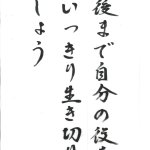 後まで自分の役を
いっきり生き切り
しょう